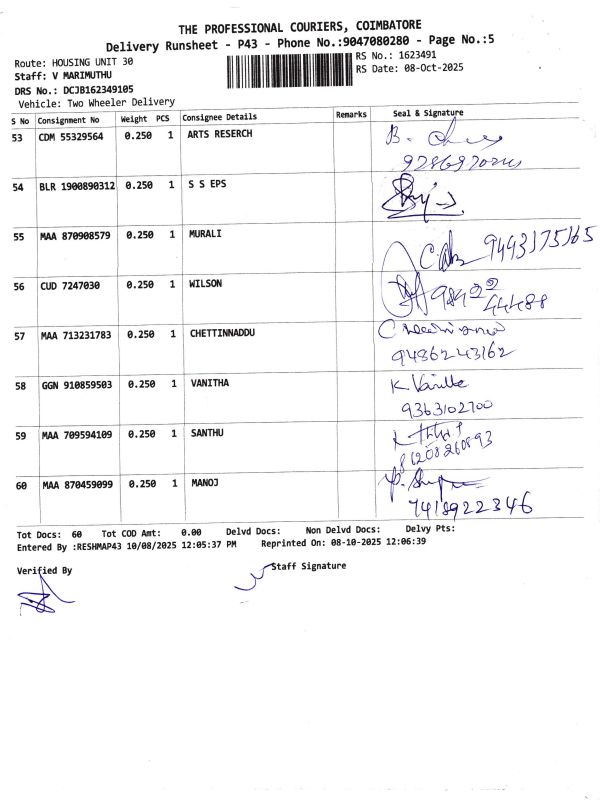 THE PROFESSIONAL COURIERS, COIMBATORE
Delivery Runsheet - P43 - Phone No.:9047080280 - Page No.:5
Route: HOUSING UNIT 30
RS No.: 1623491
Staff: V MARIMUTHU
RS Date: 08-Oct-2025
DRS No.: DCJB162349105
Vehicle: Two Wheeler Delivery
S No Consignment No Weight PCS Consignee Details Remarks Seal & Signature
53 CDM 55329564 0.250 1 ARTS RESERCH B.
54 BLR 1900890312 0.250 1 S S EPS
55 MAA 870908579 0.250 1 MURALI 9443175165
56 CUD 7247030 0.250 1 WILSON
44488
57 MAA 713231783 0.250 1 CHETTINNADDU
9486243162
58 GGN 910859503 0.250 1 VANITHA K. Vanitha
9363102700
59 MAA 709594109 0.250 1 SANTHU
81208260893
60 MAA 870459099 0.250 1 MANOJ
7418922346
Tot Docs: 60 Tot COD Amt: 0.00 Delvd Docs: Non Delvd Docs: Delvy Pts:
Entered By :RESHMAP43 10/08/2025 12:05:37 PM Reprinted On: 08-10-2025 12:06:39
Verified By Staff Signature